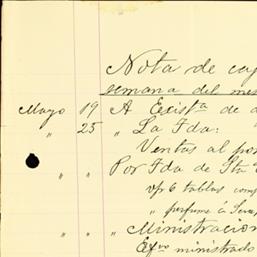 Nota de
semana del mes
Mayo 19 A Exist.a de
" 25 " La Fda:
Ventas al por
" " Por Fda de Sta
v/p 6 tablas comp
" perfume a
" " " Ministracion
Ef.vo ministrado